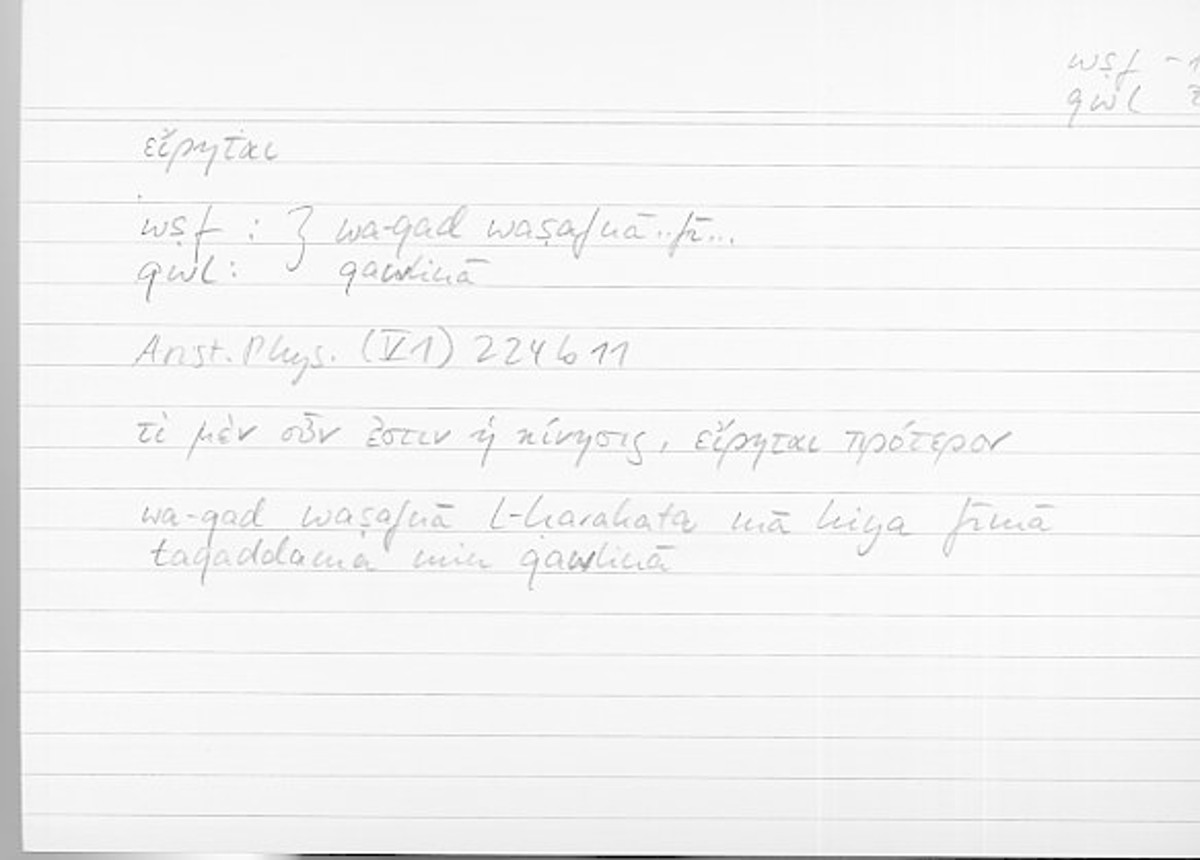 wṣf - 1
qwl
εἴρηται
wṣf : } wa-qad waṣafnā..fī...
qwl: qawlinā
Arist. Phys. (V 1) 224 b 11
τὶ μὲν οὖν ἐστιν ἡ κίνησις, εἴρηται πρότερον
wa-qad waṣafnā l-ḥarakata mā hiya fīmā
taqaddama min qawlinā